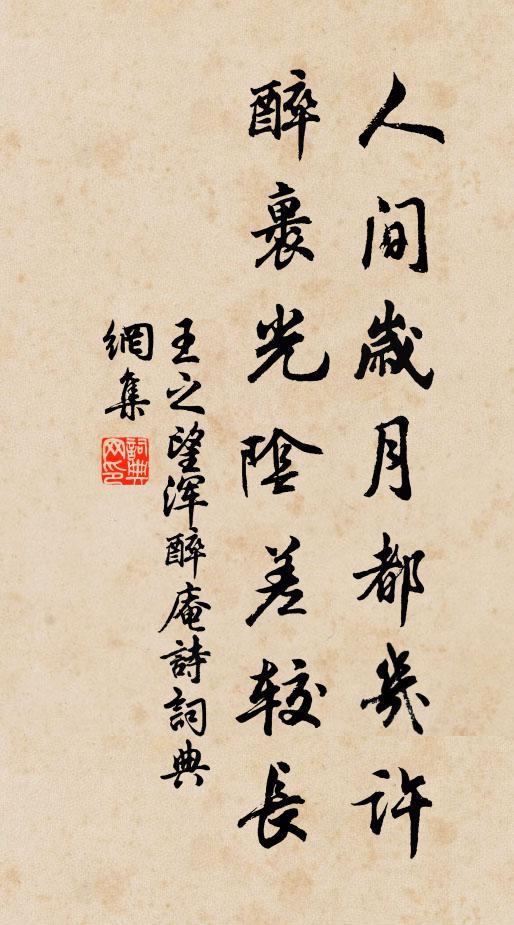 人间歲月都幾许
醉裏光陰差较長
王之望浑醉庵詩詞典
網集
詞典网印